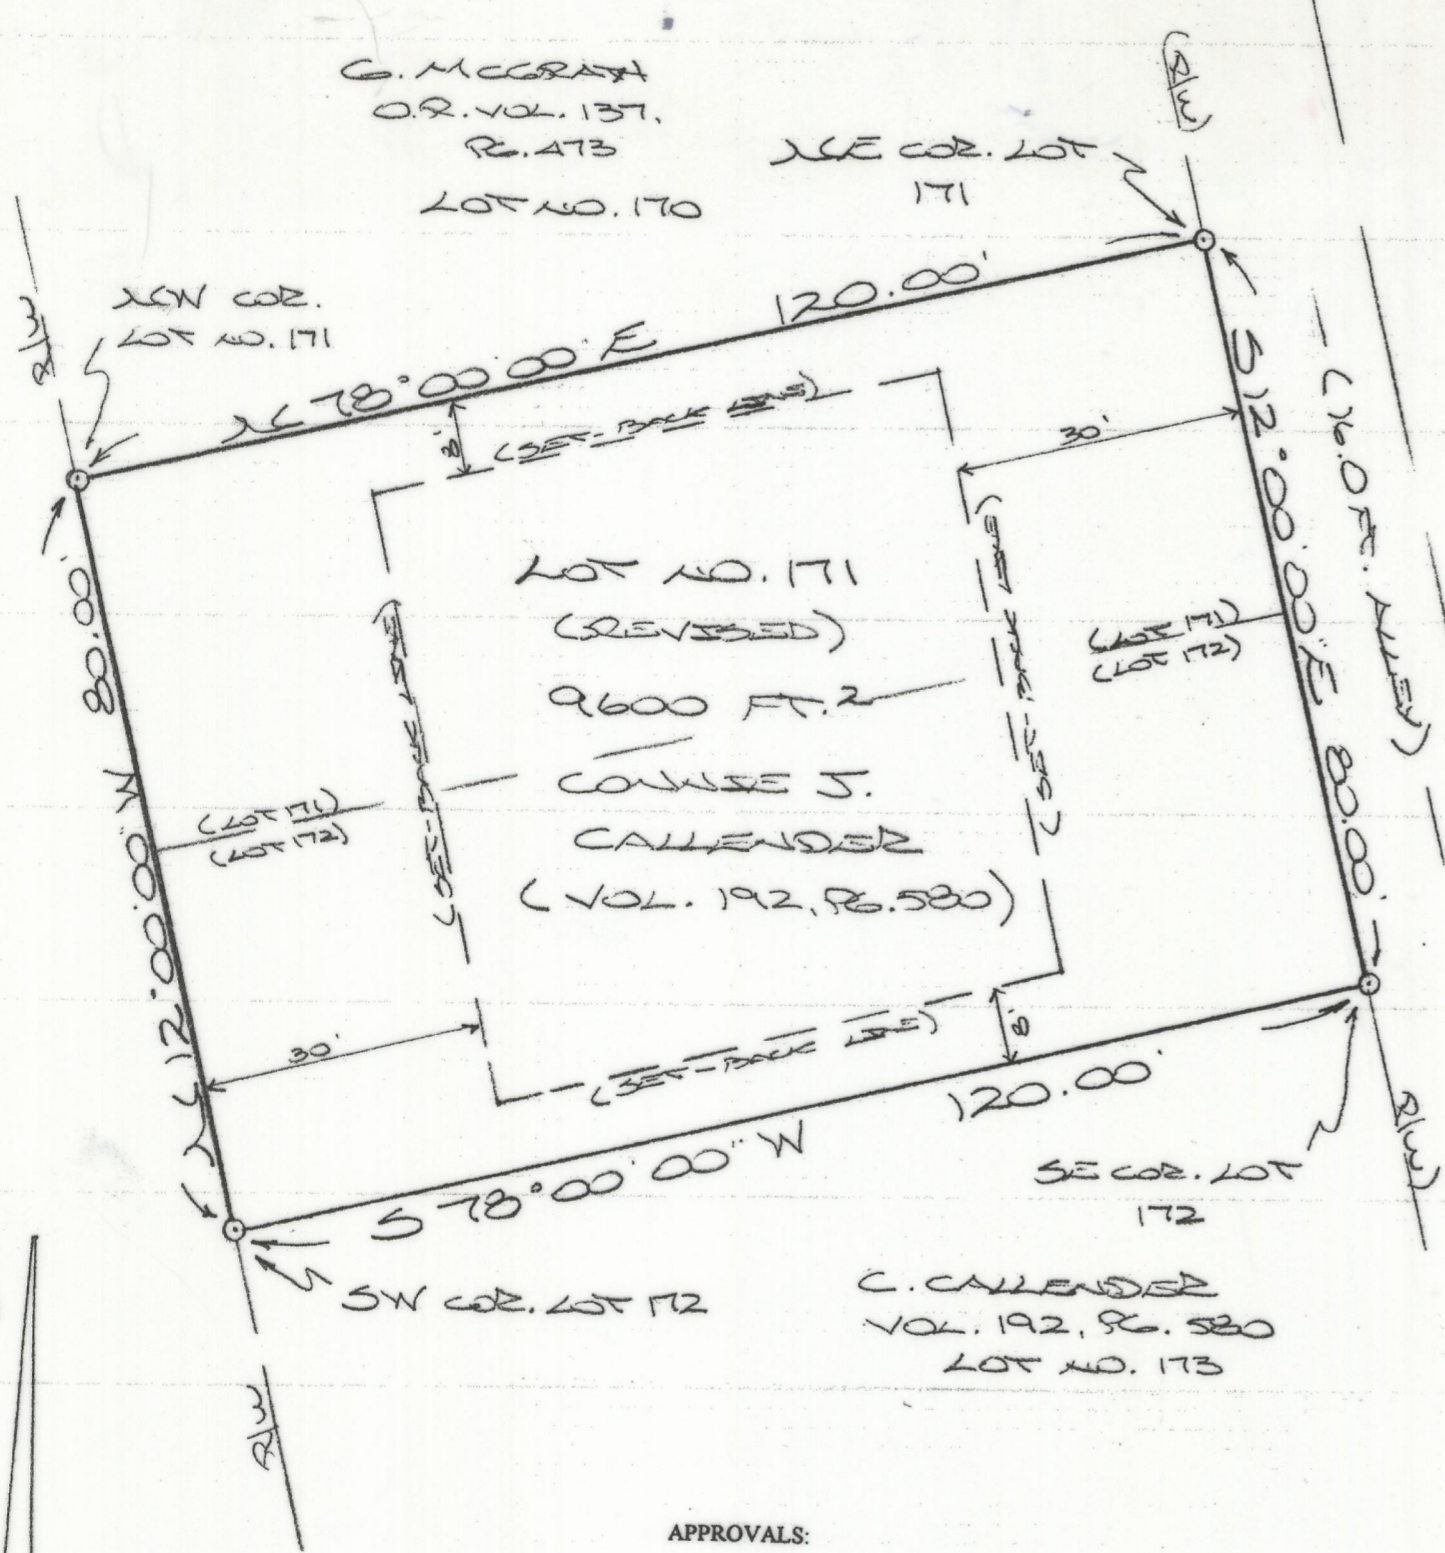 G. MCGRATH
O.R. VOL. 137,
PG. 473
LOT NO. 170
(R/W)
NE COR. LOT
171
NW COR.
LOT NO. 171
R/W
N 78°00'00" E
120.00'
8'
(SET-BACK LINE)
30'
S 12°00'00" E 80.00'
(16.0 FT. ALLEY)
80.00'
N 12°00'00" W
LOT NO. 171
(REVISED)
9600 FT.2
CONNIE J.
CALLENDER
(VOL. 192, PG. 580)
(SET-BACK LINE)
(SET-BACK LINE)
(LOT 171)
(LOT 172)
(LOT 171)
(LOT 172)
30'
(SET-BACK LINE)
8'
120.00'
S 78°00'00" W
R/W)
SE COR. LOT
172
SW COR. LOT 172
C. CALLENDER
VOL. 192, PG. 580
LOT NO. 173
R/W
APPROVALS: